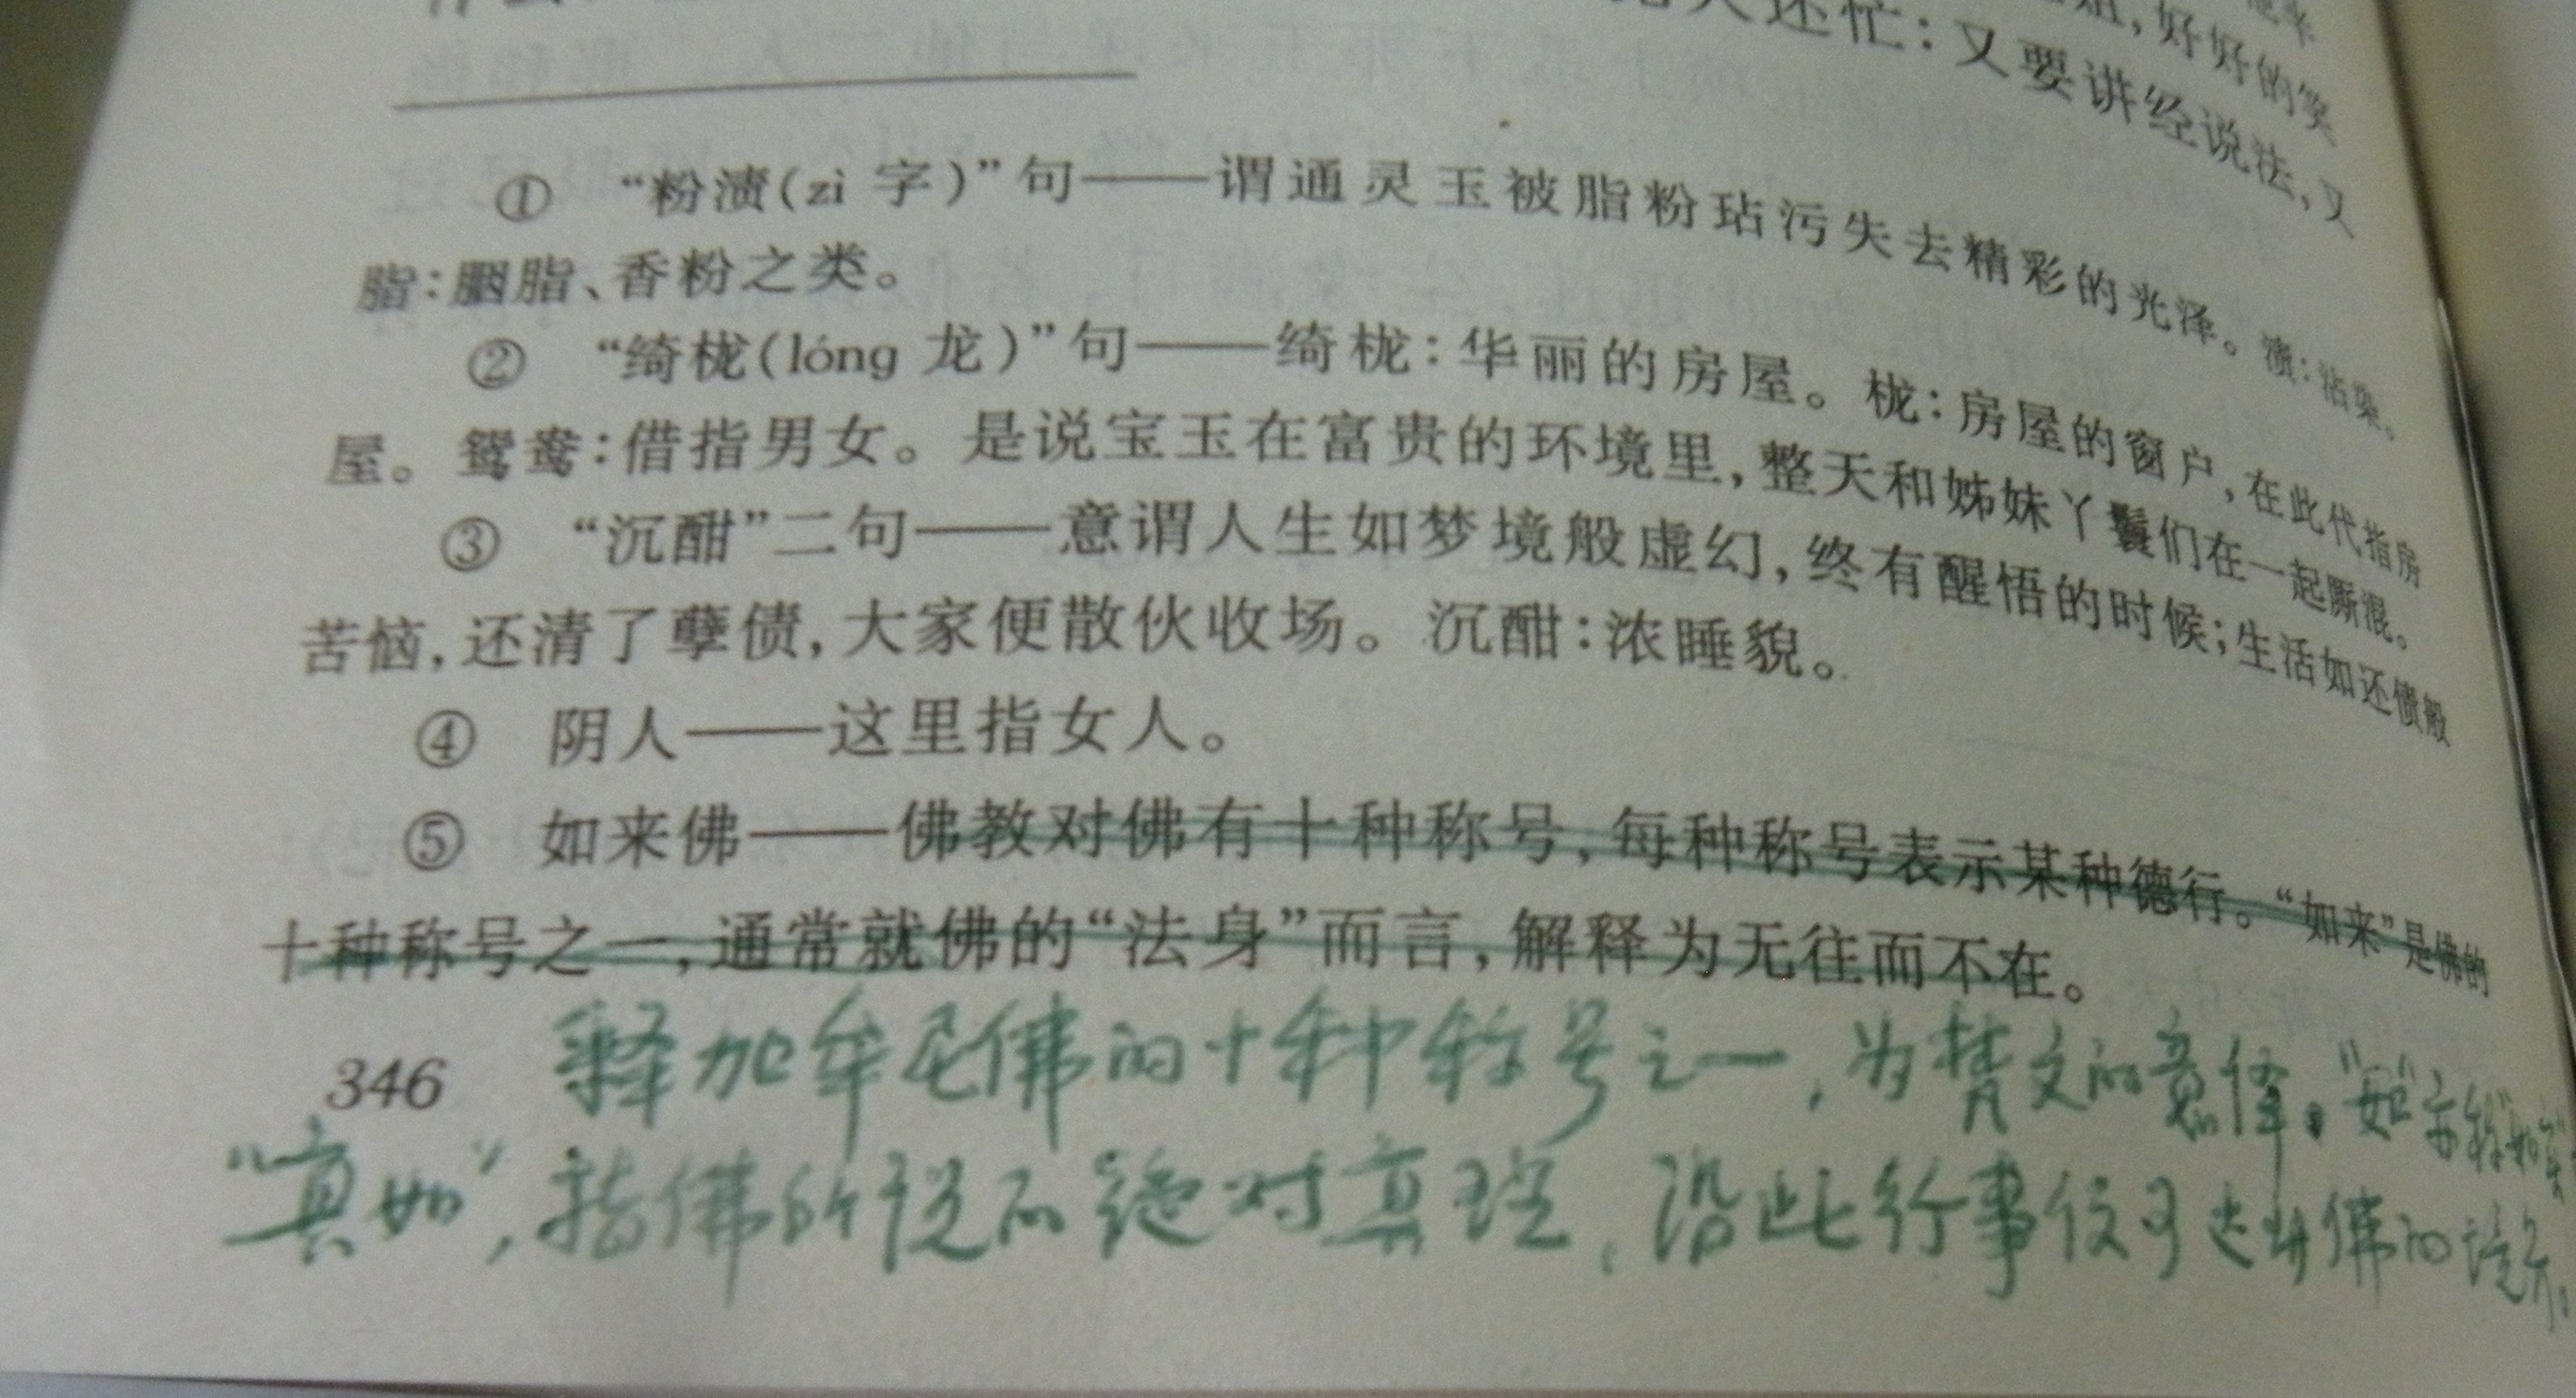 人还忙：又要讲经说法，又
姐，好好的笑
① “粉渍(zì 字)”句——谓通灵玉被脂粉玷污失去精彩的光泽。渍：沾染。
脂：胭脂、香粉之类。
② “绮栊(lóng 龙)”句——绮栊：华丽的房屋。栊：房屋的窗户，在此代指房
屋。鸳鸯：借指男女。是说宝玉在富贵的环境里，整天和姊妹丫鬟们在一起厮混。
③ “沉酣”二句——意谓人生如梦境般虚幻，终有醒悟的时候；生活如还债般
苦恼，还清了孽债，大家便散伙收场。沉酣：浓睡貌。
④ 阴人——这里指女人。
⑤ 如来佛——佛教对佛有十种称号，每种称号表示某种德行。“如来”是佛的
十种称号之一，通常就佛的“法身”而言，解释为无往而不在。
346 释加牟尼佛的十种称号之一，为梵文的意译。“如”亦称“如实”
“真如”，指佛所说的绝对真理，沿此行事便可达到佛的境介。